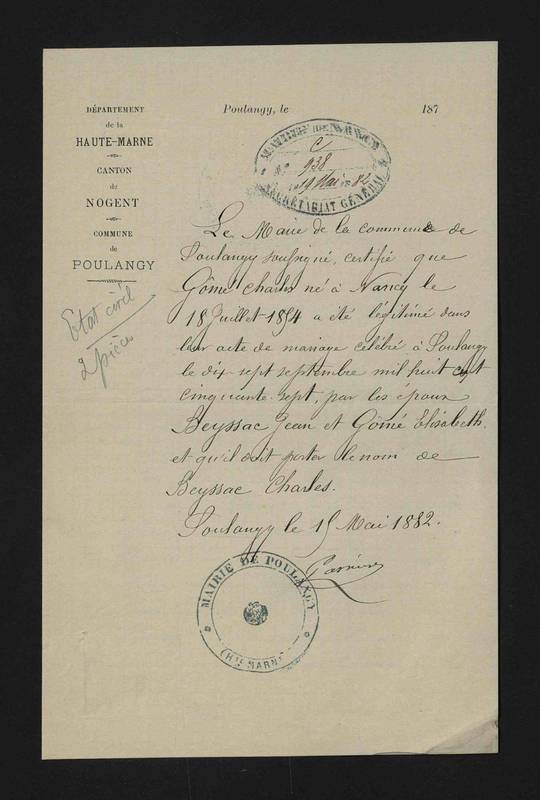 DÉPARTEMENT
de la
HAUTE-MARNE
CANTON
de
NOGENT
COMMUNE
de
POULANGY
Etat civil
2 pièces
Poulangy, le 187
C
938
19 Mai 82
SECRÉTARIAT GÉNÉRAL
Le Maire de la commune de
Poulangy soussigné, certifie que
Gômé Charles né à Nancy le
18 Juillet 1854 a été légitimé dans
leur acte de mariage célébré à Poulangy
le dix-sept septembre mil huit cent
cinquante-sept, par les époux
Beyssac Jean et Gômé Elisabeth,
et qu'il doit porter le nom de
Beyssac Charles.
Poulangy le 15 Mai 1882.
MAIRIE DE POULANGY
(HTE MARNE)